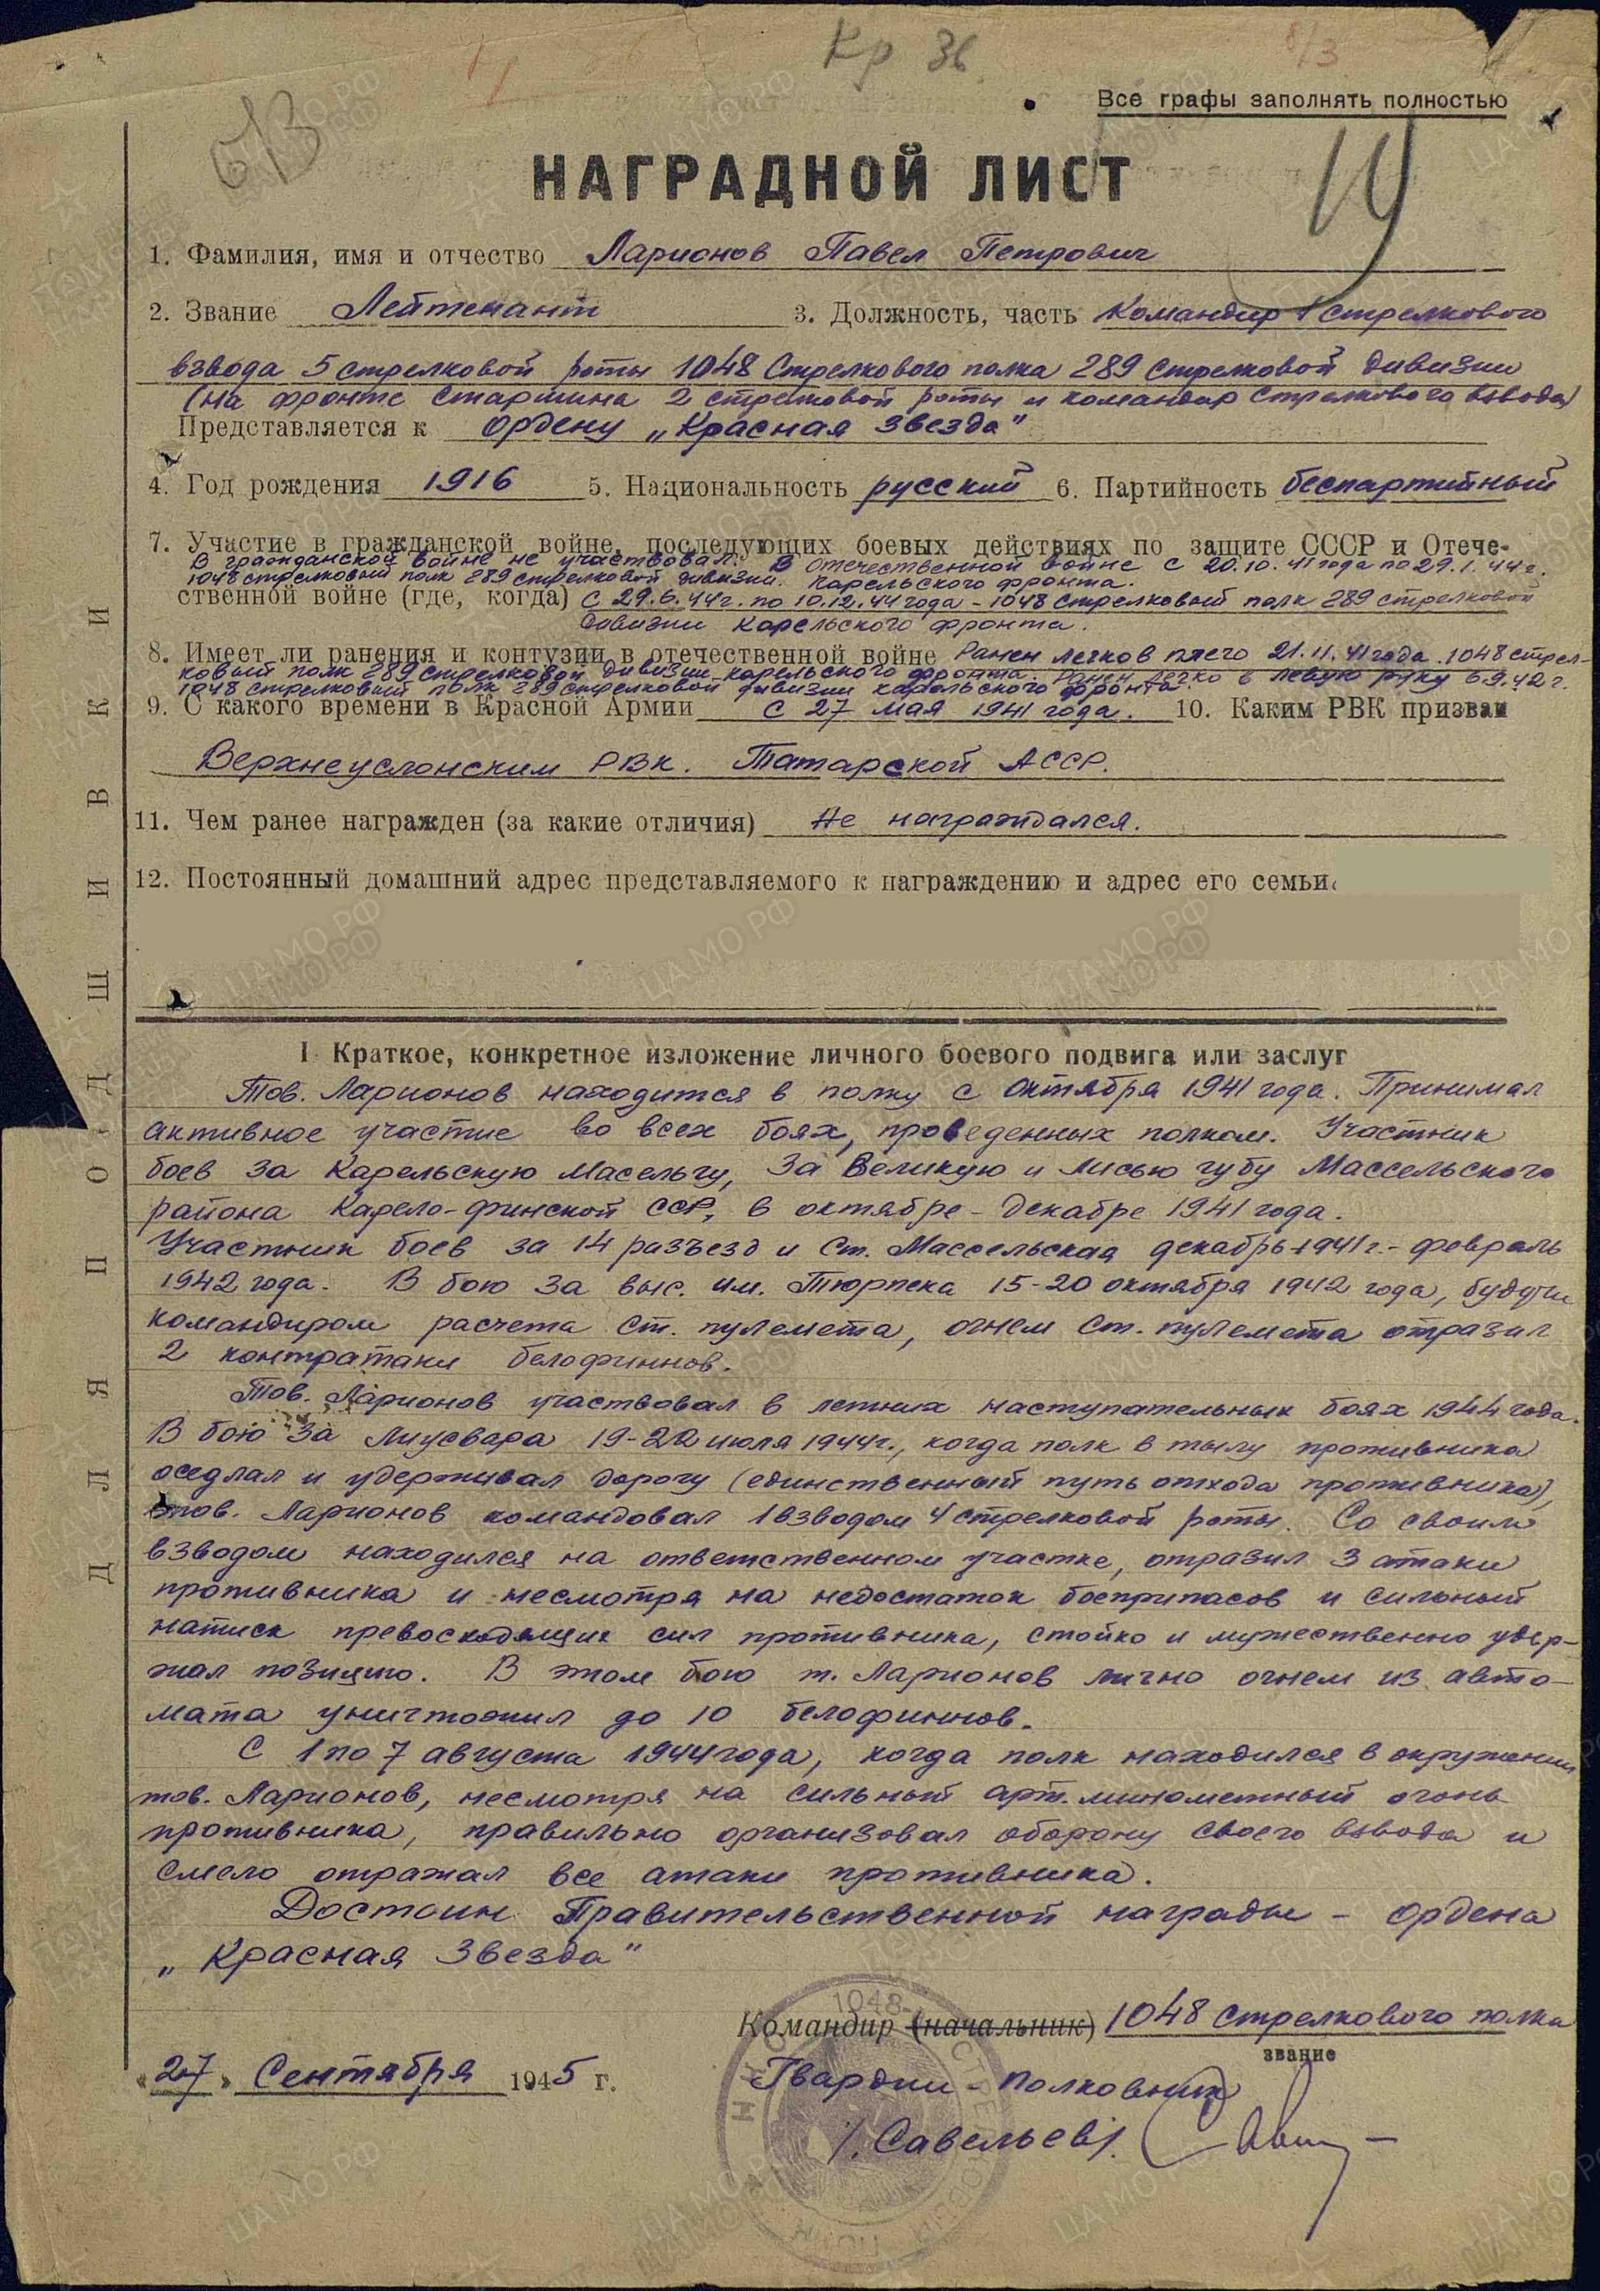 Кр 36
Все графы заполнять полностью
613
19
НАГРАДНОЙ ЛИСТ
1. Фамилия, имя и отчество Ларионов Павел Петрович
2. Звание Лейтенант 3. Должность, часть Командир 1 стрелкового
взвода 5 стрелковой роты 1048 Стрелкового полка 289 Стрелковой дивизии
(на фронте старшина 2 стрелковой роты и командир стрелкового взвода)
Представляется к ордену „Красная Звезда"
4. Год рождения 1916 5. Национальность русский 6. Партийность беспартийный
7. Участие в гражданской войне, последующих боевых действиях по защите СССР и Отече-
В гражданской войне не участвовал. В Отечественной войне с 20.10.41 года по 29.1.44 г.
1048 стрелковый полк 289 стрелковой дивизии. Карельского фронта.
ственной войне (где, когда) С 29.6.44г. по 10.12.44 года - 1048 стрелковый полк 289 стрелковой
дивизии Карельского фронта.
8. Имеет ли ранения и контузии в отечественной войне Ранен легко в плечо 21.11.41 года. 1048 стрел-
ковый полк 289 стрелковой дивизии карельского фронта. Ранен легко в левую руку 6.9.42 г.
1048 стрелковый полк 289 стрелковой дивизии карельского фронта.
9. С какого времени в Красной Армии с 27 мая 1941 года. 10. Каким РВК призван
Верхнеуслонским РВК. Татарской АССР.
11. Чем ранее награжден (за какие отличия) Не награждался.
12. Постоянный домашний адрес представляемого к награждению и адрес его семьи
I. Краткое, конкретное изложение личного боевого подвига или заслуг
Тов. Ларионов находится в полку с октября 1941 года. Принимал
активное участие во всех боях, проведенных полком. Участник
боев за Карельскую Масельгу, за Великую и Лисью губу Массельского
района Карело-финской ССР, в октябре - декабре 1941 года.
Участник боев за 14 разъезд и ст. Массельская декабрь 1941 г. - февраль
1942 года. В бою за выс. им. Тюрпека 15-20 октября 1942 года, будучи
командиром расчета ст. пулемета, огнем ст. пулемета отразил
2 контратаки белофиннов.
Тов. Ларионов участвовал в летних наступательных боях 1944 года.
В бою за Лиусвара 19-22 июля 1944 г., когда полк в тылу противника
оседлал и удерживал дорогу (единственный путь отхода противника),
тов. Ларионов командовал 1 взводом 4 стрелковой роты. Со своим
взводом находился на ответственном участке, отразил 3 атаки
противника и несмотря на недостаток боеприпасов и сильный
натиск превосходящих сил противника, стойко и мужественно удер-
жал позицию. В этом бою т. Ларионов лично огнем из авто-
мата уничтожил до 10 белофиннов.
С 1 по 7 августа 1944 года, когда полк находился в окружении
тов. Ларионов, несмотря на сильный арт. минометный огонь
противника, правильно организовал оборону своего взвода и
смело отражал все атаки противника.
Достоин Правительственной награды - ордена
„Красная Звезда"
Командир (начальник) 1048 стрелкового полка
звание
„27" Сентября 1945 г.
Гвардии - полковник
/. Савельев/.
ДЛЯ ПОДШИВКИ
1048 СТРЕЛКОВЫЙ ПОЛК
НКО
ЦА МО РФ